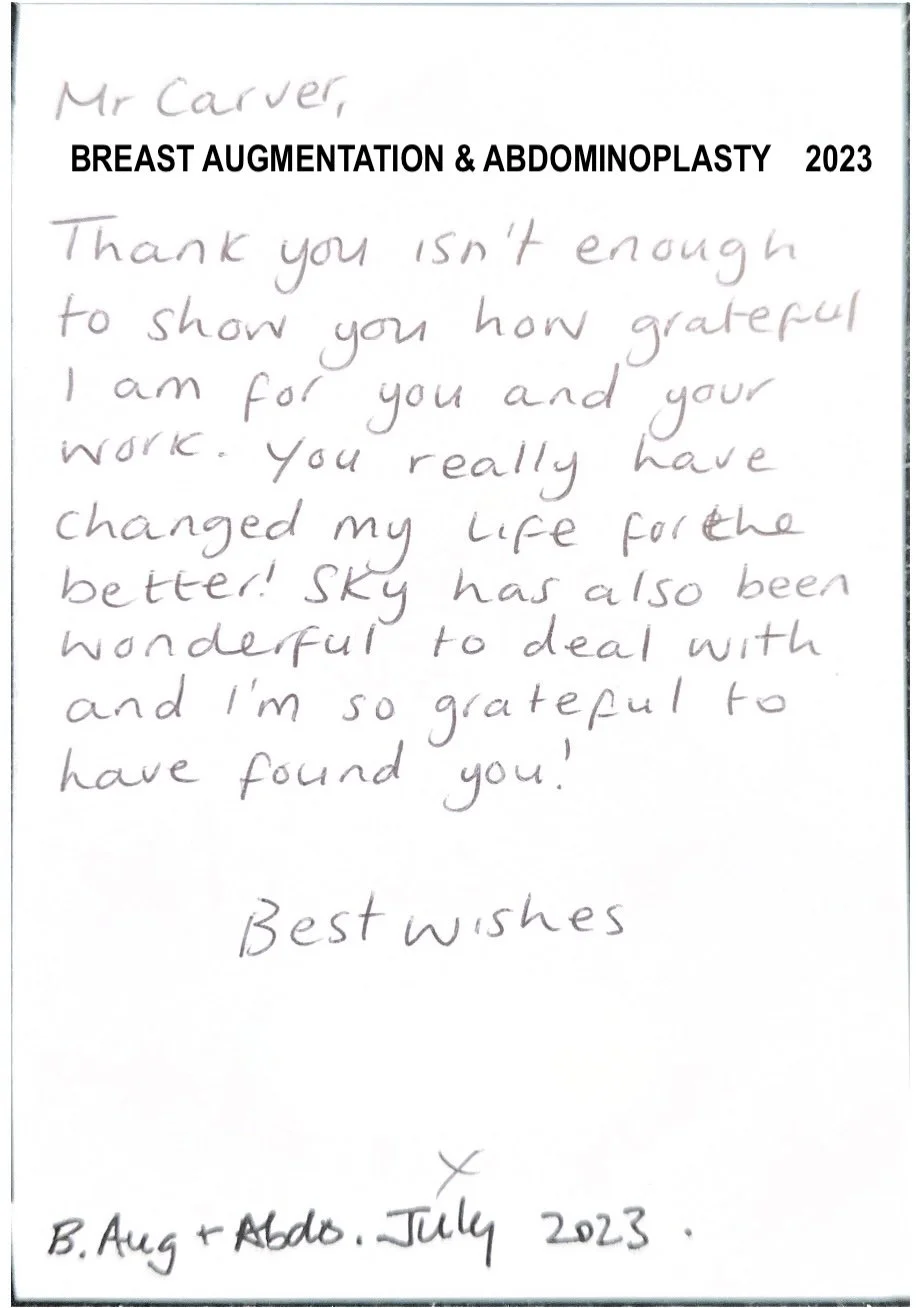 Mr Carver,
BREAST AUGMENTATION & ABDOMINOPLASTY 2023
Thank you isn't enough
to show you how grateful
I am for you and your
work. You really have
changed my life for the
better! Sky has also been
wonderful to deal with
and I'm so grateful to
have found you!
Best wishes
X
B. Aug + Abdo. July 2023.